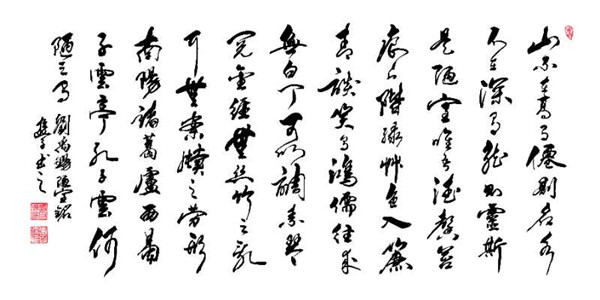 山不在高有僊則名水
不在深有龍則靈斯
是陋室唯吾德馨苔
痕上階綠艸色入簾
青談笑有鴻儒往來
無白丁可以調素琴
閱金經無絲竹之亂
耳無案牘之勞形
南陽諸葛廬西蜀
子雲亭孔子雲何
陋之有 劉禹錫陋室銘
書之